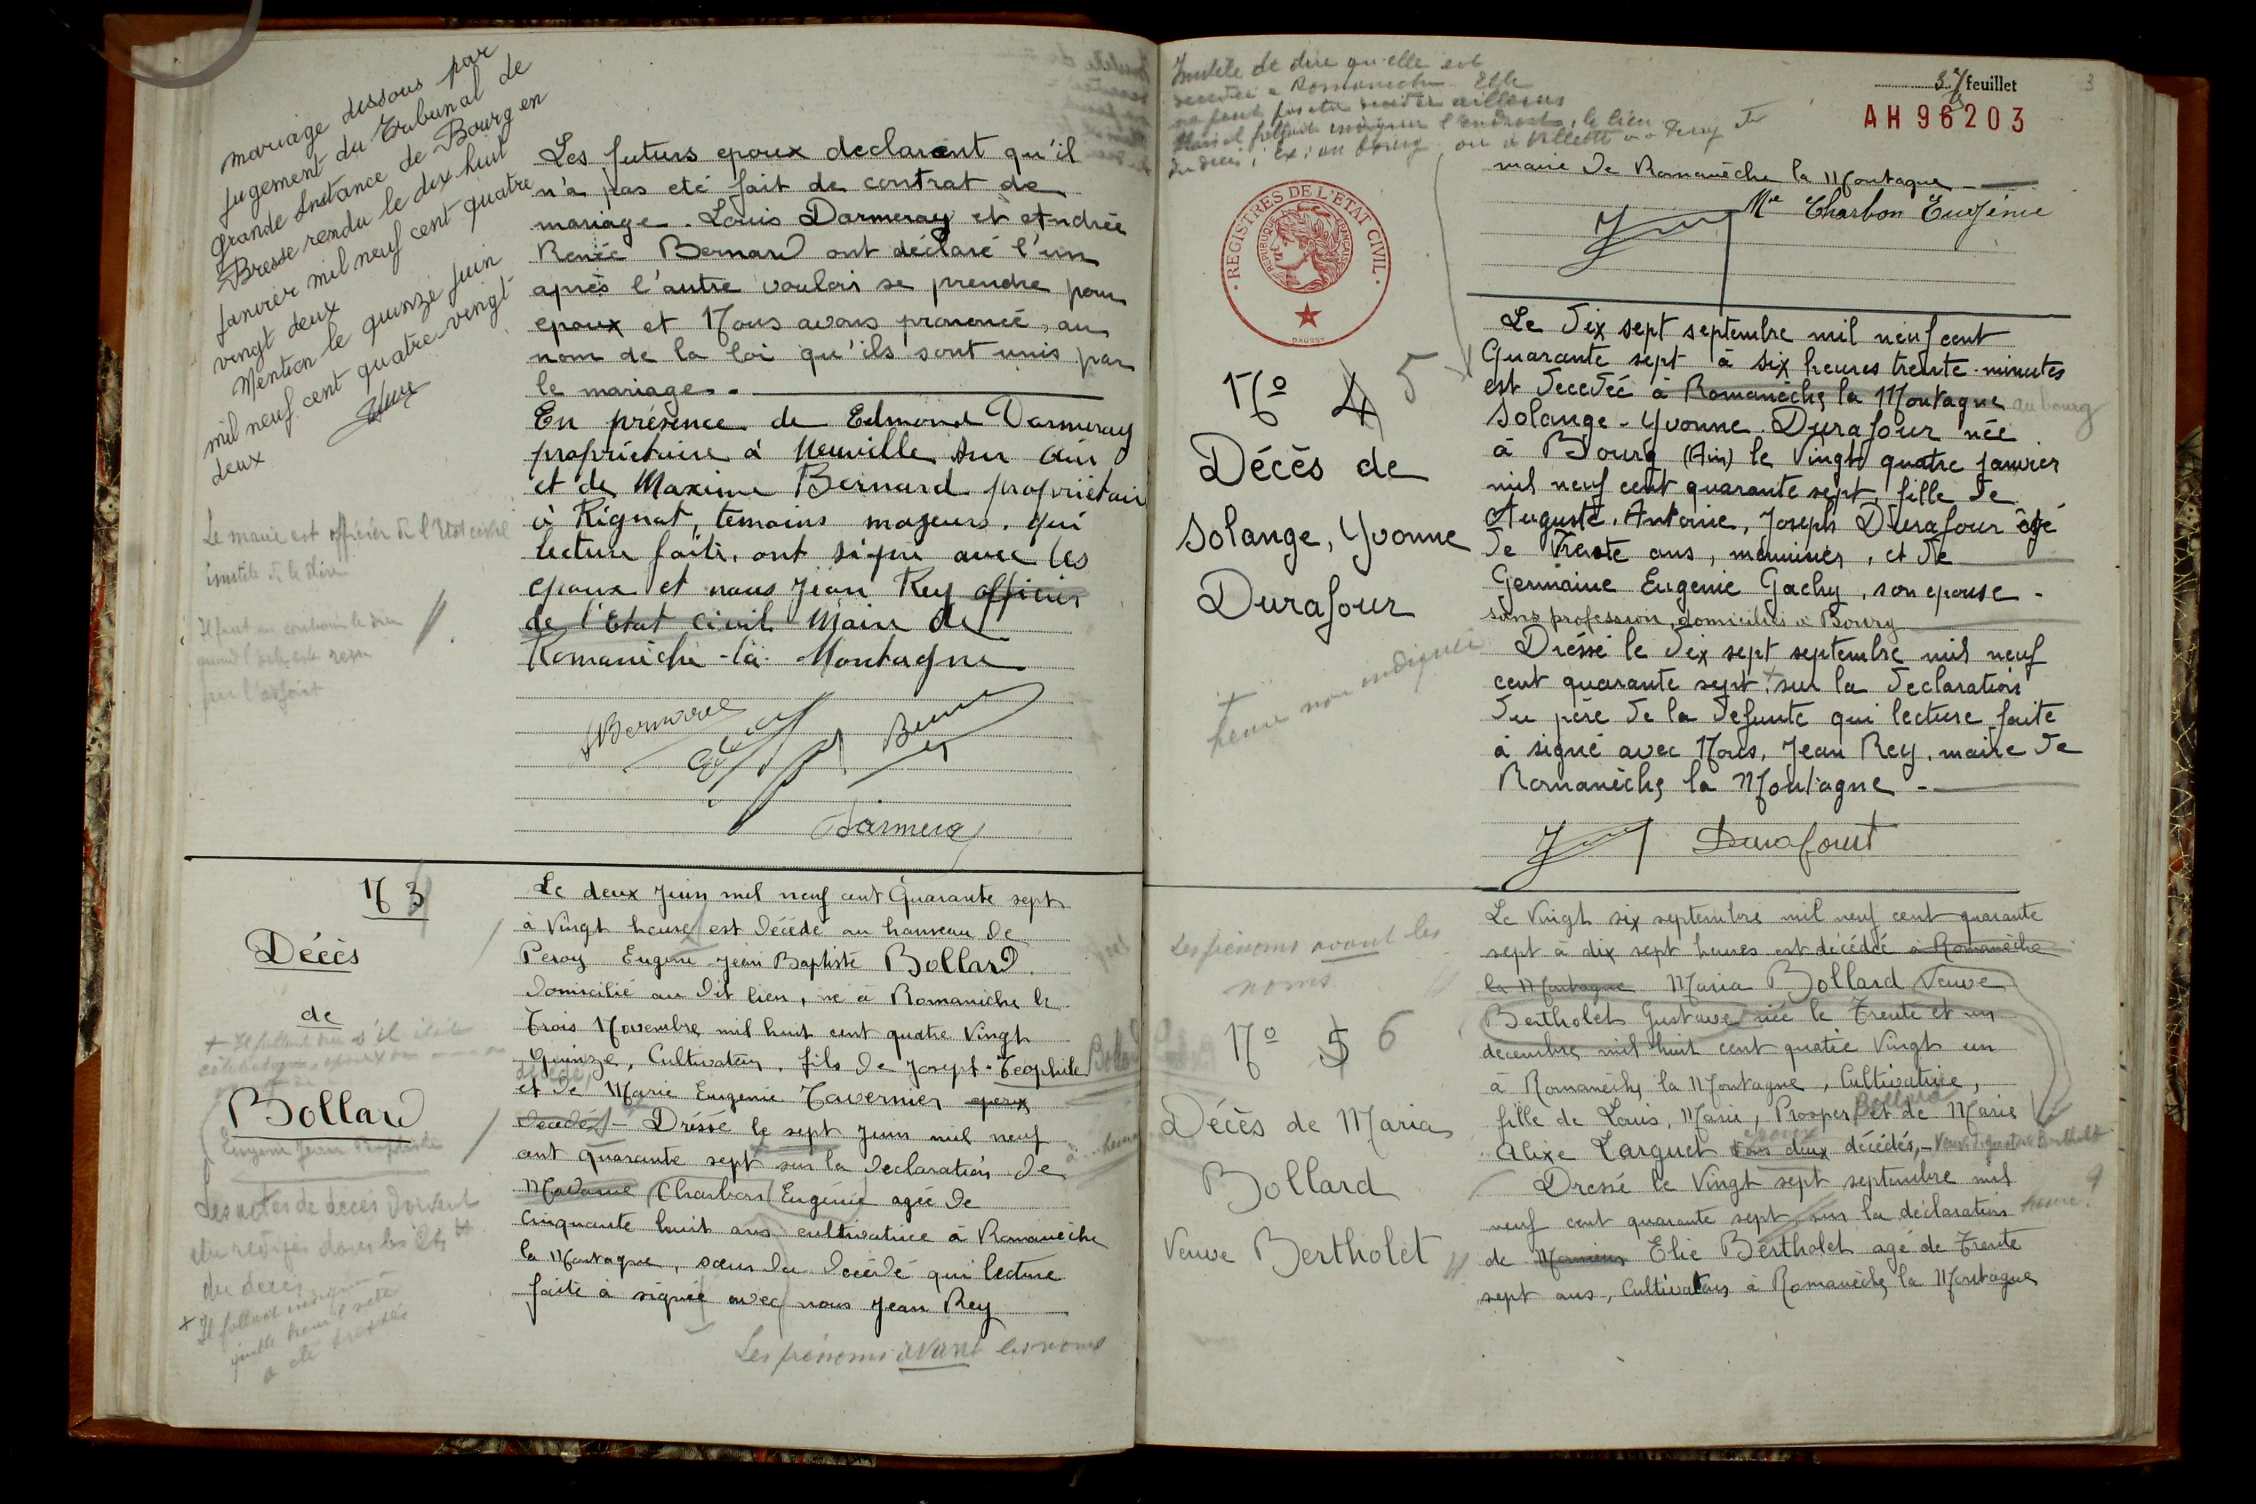 mariage dissous par
jugement du Tribunal de
Grande Instance de Bourg en
Bresse rendu le dix huit
janvier mil neuf cent quatre
vingt deux
Mention le quinze juin
mil neuf cent quatre-vingt-
deux
Les futurs epoux declarent qu'il
n'a pas eté fait de contrat de
mariage. Louis Darmeray et Andrée
Renée Bernard ont déclaré l'un
après l'autre vouloir se prendre pour
epoux et Nous avons prononcé, au
nom de la loi qu'ils sont unis par
le mariage.
En présence de Edmond Darmeray
propriétaire à Neuville sur Ain
et de Maxime Bernard propriétaire
à Rignat, temoins majeurs. qui
lecture faite, ont signé avec les
epoux et nous Jean Rey officier
de l'Etat civil Maire de
Romanèche-la-Montagne
Le maire est officier de l'Etat civil
inutile de le dire
Il faut au contraire le dire
quand l'acte est reçu
par l'adjoint
Darmeray
N 3
Décès
de
Bollard
Eugène Jean Baptiste
Les actes de décès doivent
être redigés dans les 24 H
du décès
+ Il fallait indiquer
quelle heure l'acte
a été dressé
Le deux Juin mil neuf cent Quarante sept
à Vingt heure est décédé au hameau de
Peroy Eugène Jean Baptiste Bollard.
domicilié au dit lieu, né à Romanèche le
Trois Novembre mil huit cent quatre Vingt
Quinze, Cultivateur, fils de Joseph-Teophile
et de Marie Eugenie Tavernier epoux
décédés - Dréssé le sept Juin mil neuf
cent quarante sept sur la déclaration de
Madame Charbon Eugénie agée de
Cinquante huit ans cultivatrice à Romanèche
la Montagne, sœur du décédé qui lecture
faite à signée avec nous Jean Rey
Les prénoms avant les noms
Inutile de dire qu'elle est
décédée à Romanèche. Elle
ne peut pas être décédée ailleurs
Mais il fallait indiquer l'endroit, le lieu
du décès, Ex: au bourg, ou à
3 feuillet
3
AH 96203
maire de Romanèche la Montagne
Me Charbon Eugénie
REGISTRES DE L'ETAT CIVIL
REPUBLIQUE FRANÇAISE
No 4 5
Décès de
Solange, Yvonne
Durafour
+
heure non indiquée
Le dix sept septembre mil neuf cent
Quarante sept à six heures trente minutes
est decedée à Romanèche la Montagne au bourg
Solange-Yvonne Durafour née
à Bourg (Ain) le Vingt quatre janvier
mil neuf cent quarante sept, fille de
Auguste, Antoine, Joseph Durafour âgé
de Trente ans, menuisier, et de
Germaine Eugenie Gachy, son epouse -
sans profession, domiciliés à Bourg
Dréssé le dix sept septembre mil neuf
cent quarante sept, sur la declaration
du père de la defunte qui lecture faite
à signé avec Nous, Jean Rey, maire de
Romanèche la Montagne -
Durafour
Les prénoms avant les
noms
No 5 6
Décès de Maria
Bollard
Veuve Bertholet
Le Vingt six septembre mil neuf cent quarante
sept à dix sept heures est décédée à Romanèche
la Montagne Maria Bollard Veuve
Bertholet Gustave née le Trente et un
decembre mil huit cent quatre Vingt un
à Romanèche la Montagne, Cultivatrice,
fille de Louis, Marie, Prosper Bollard et de Marie
Alixe Larguet epoux tous deux décédés, - Veuve de Gustave Bertholet
Dressé le Vingt sept septembre mil
neuf cent quarante sept, sur la déclaration heure?
de Monsieur Elie Bertholet agé de Trente
sept ans, Cultivateur à Romanèche la Montagne